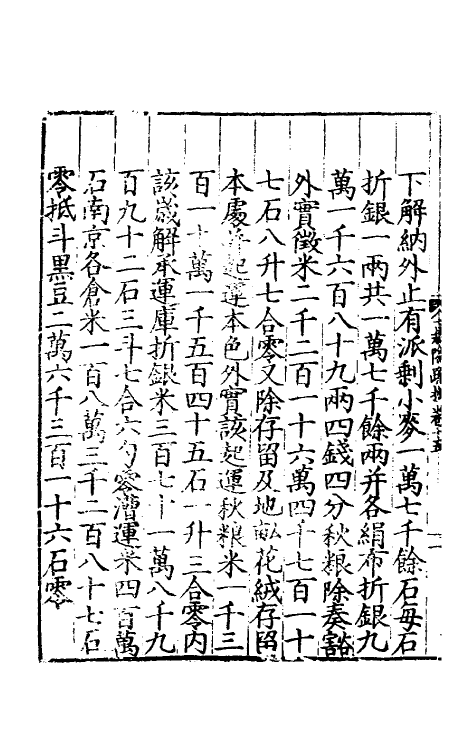 下解納外止有派剩小麥一萬七千餘石每石
折銀一兩共一萬七千餘兩并各絹布折銀九
萬一千六百八十九兩四錢四分秋粮除奏豁
外實徵米二千二百一十六萬四千七百一十
七石八升七合零又除存留及地畝花絨存留
本處并起運本色外實該起運秋粮米一千三
百一十萬一千五百四十五石一升三合零内
該歲解承運庫折銀米三百七十一萬八千九
百九十二石三斗七合六勺零漕運米四百萬
石南京各倉米一百八萬三千二百八十七石
零抵斗黑豆二萬六千三百一十六石零